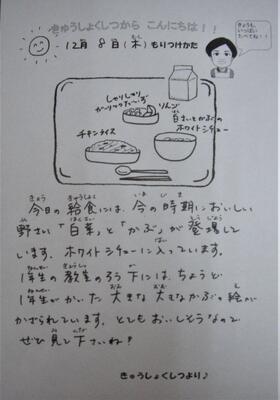 きゅうしょくしつから こんにちは!!
12月 8日(木)もりつけかた
きょうも、
いっぱい
たべてね!!
しゃりしゃり
ガーリックポテーズ
りんご
白さいとかぶの
ホワイトシチュー
チキンライス
今日の給食には、今の時期においしい
野さい「白菜」と「かぶ」が登場して
います。ホワイトシチューに入っています。
1年生の教室のろう下には、ちょうど
1年生がかいた大きな大きなかぶの絵が
かざられています。とてもおいしそうなので
ぜひ見て下さいね?
きゅうしょくしつより♪